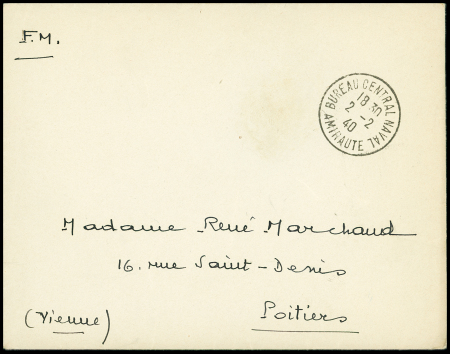 F.M.
BUREAU CENTRAL NAVAL
18 30
2 -2
40
AMIRAUTE
Madame René Marchaud
16. rue Saint-Denis
Poitiers
(Vienne)